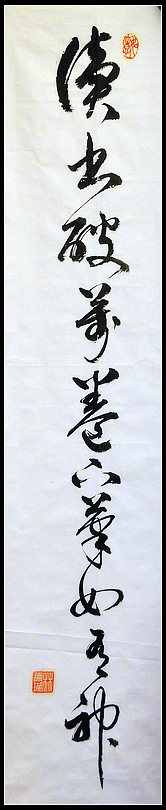 讀書破萬卷下筆如有神